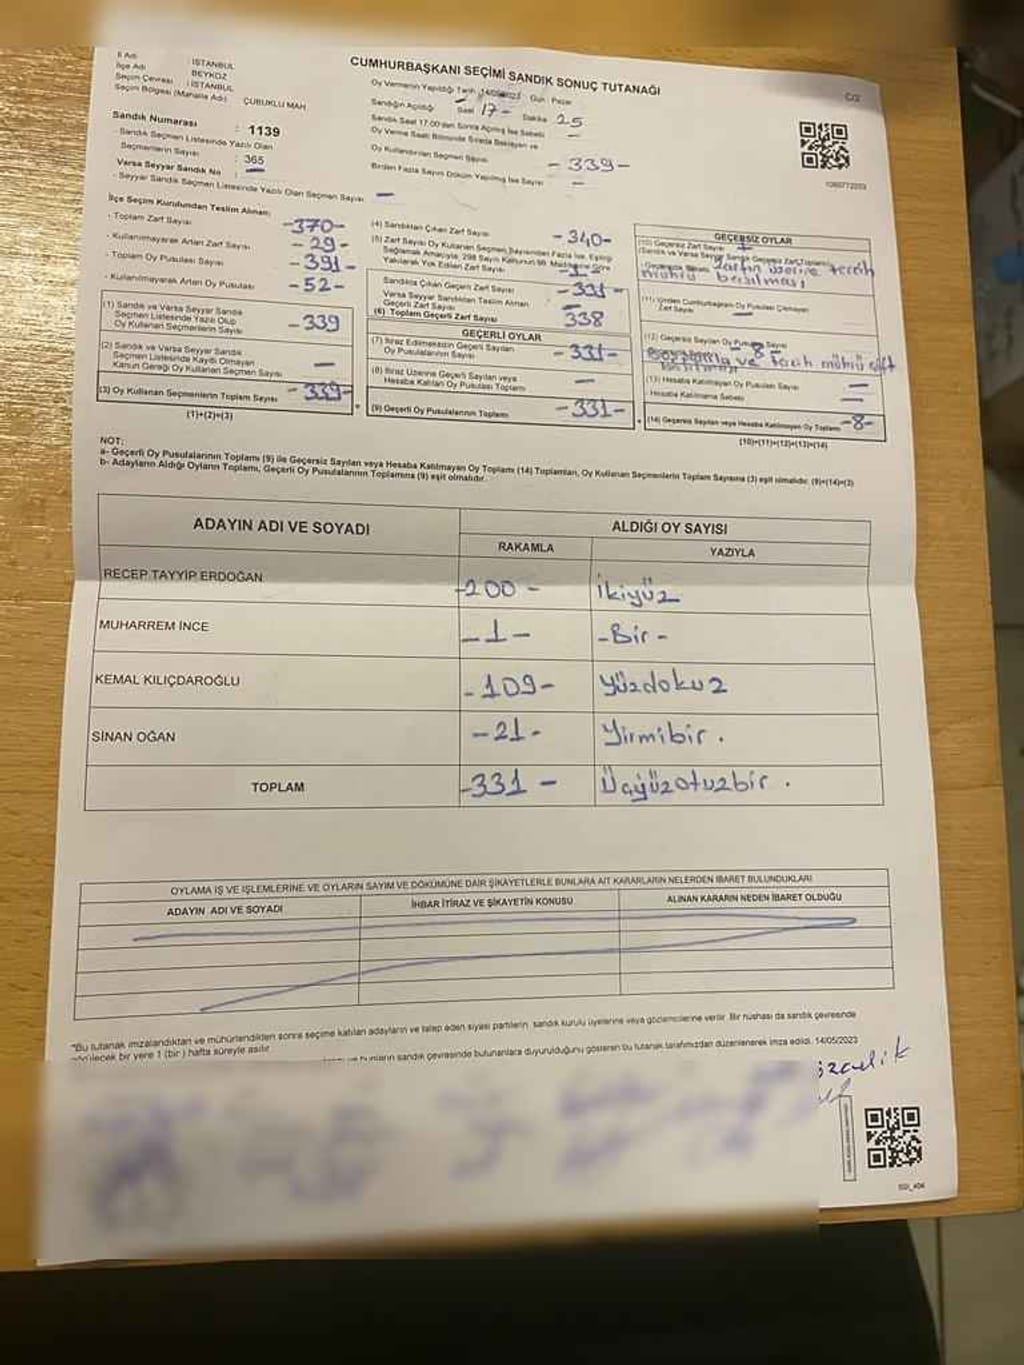 CUMHURBAŞKANI SEÇİMİ SANDIK SONUÇ TUTANAĞI
C/2
İl Adı : İSTANBUL
İlçe Adı : BEYKOZ
Seçim Çevresi : İSTANBUL
Seçim Bölgesi (Mahalle Adı) ÇUBUKLU MAH
Sandık Numarası : 1139
- Sandık Seçmen Listesinde Yazılı Olan
Seçmenlerin Sayısı : 365
Varsa Seyyar Sandık No : —
- Seyyar Sandık Seçmen Listesinde Yazılı Olan Seçmen Sayısı —
Oy Vermenin Yapıldığı Tarih 14/05/2023 Gün : Pazar
Sandığın Açıldığı Saat 17- Dakika 25
Sandık Saat 17.00'den Sonra Açılmış İse Sebebi —
Oy Verme Saati Bitiminde Sırada Bekleyen ve
Oy Kullandırılan Seçmen Sayısı -339-
Birden Fazla Sayım Döküm Yapılmış İse Sayısı —
İlçe Seçim Kurulundan Teslim Alınan;
- Toplam Zarf Sayısı -370-
- Kullanılmayarak Artan Zarf Sayısı -29-
- Toplam Oy Pusulası Sayısı -391-
- Kullanılmayarak Artan Oy Pusulası -52-
(1) Sandık ve Varsa Seyyar Sandık
Seçmen Listesinde Yazılı Olup
Oy Kullanan Seçmenlerin Sayısı -339
(2) Sandık ve Varsa Seyyar Sandık
Seçmen Listesinde Kaydı Olmayan
Kanun Gereği Oy Kullanan Seçmen Sayısı —
(3) Oy Kullanan Seçmenlerin Toplam Sayısı -339-
(1)+(2)=(3)
(4) Sandıktan Çıkan Zarf Sayısı -340-
(5) Zarf Sayısı Oy Kullanan Seçmen Sayısından Fazla İse, Eşitliği
Sağlamak Amacıyla, 298 Sayılı Kanunun 98. Maddesine Göre
Yakılarak Yok Edilen Zarf Sayısı -1-
Sandıkta Çıkan Geçerli Zarf Sayısı -331-
Varsa Seyyar Sandıktan Teslim Alınan
Geçerli Zarf Sayısı —
(6) Toplam Geçerli Zarf Sayısı 338
GEÇERLİ OYLAR
(7) İtiraz Edilmeksizin Geçerli Sayılan
Oy Pusulalarının Sayısı -331-
(8) İtiraz Üzerine Geçerli Sayılan veya
Hesaba Katılan Oy Pusulası Toplamı —
(9) Geçerli Oy Pusulalarının Toplamı -331-
GEÇERSİZ OYLAR
(10) Geçersiz Zarf Sayısı 1
(Sandık ve Varsa Seyyar Sandık Geçersiz Zarf Toplamı)
zarfın üzerine tercih
mührü basılması
(11) İçinden Cumhurbaşkanı Oy Pusulası Çıkmayan
Zarf Sayısı —
(12) Geçersiz Sayılan Oy Pusulası Sayısı -8-
ve tercih mührü çift
(13) Hesaba Katılmayan Oy Pusulası Sayısı —
- Hesaba Katılmama Sebebi —
(14) Geçersiz Sayılan veya Hesaba Katılmayan Oy Toplamı -8-
(10)+(11)+(12)+(13)=(14)
NOT:
a- Geçerli Oy Pusulalarının Toplamı (9) ile Geçersiz Sayılan veya Hesaba Katılmayan Oy Toplamı (14) Toplamları, Oy Kullanan Seçmenlerin Toplam Sayısına (3) eşit olmalıdır. (9)+(14)=(3)
b- Adayların Aldığı Oyların Toplamı, Geçerli Oy Pusulalarının Toplamına (9) eşit olmalıdır.
ADAYIN ADI VE SOYADI ALDIĞI OY SAYISI
RAKAMLA YAZIYLA
RECEP TAYYİP ERDOĞAN -200- İkiyüz
MUHARREM İNCE -1- -Bir-
KEMAL KILIÇDAROĞLU -109- Yüzdokuz
SİNAN OĞAN -21- Yirmibir.
TOPLAM -331- Üçyüzotuzbir.
OYLAMA İŞ VE İŞLEMLERİNE VE OYLARIN SAYIM VE DÖKÜMÜNE DAİR ŞİKAYETLERLE BUNLARA AİT KARARLARIN NELERDEN İBARET BULUNDUKLARI
ADAYIN ADI VE SOYADI İHBAR İTİRAZ VE ŞİKAYETİN KONUSU ALINAN KARARIN NEDEN İBARET OLDUĞU
"Bu tutanak imzalandıktan ve mühürlendikten sonra seçime katılan adayların ve talep eden siyasi partilerin, sandık kurulu üyelerine veya gözlemcilerine verilir. Bir nüshası da sandık çevresinde
bir yere 1 (bir) hafta süreyle asılır.
bunların sandık çevresinde bulunanlara duyurulduğunu gösteren bu tutanak tarafımızdan düzenlenerek imza edildi. 14/05/2023